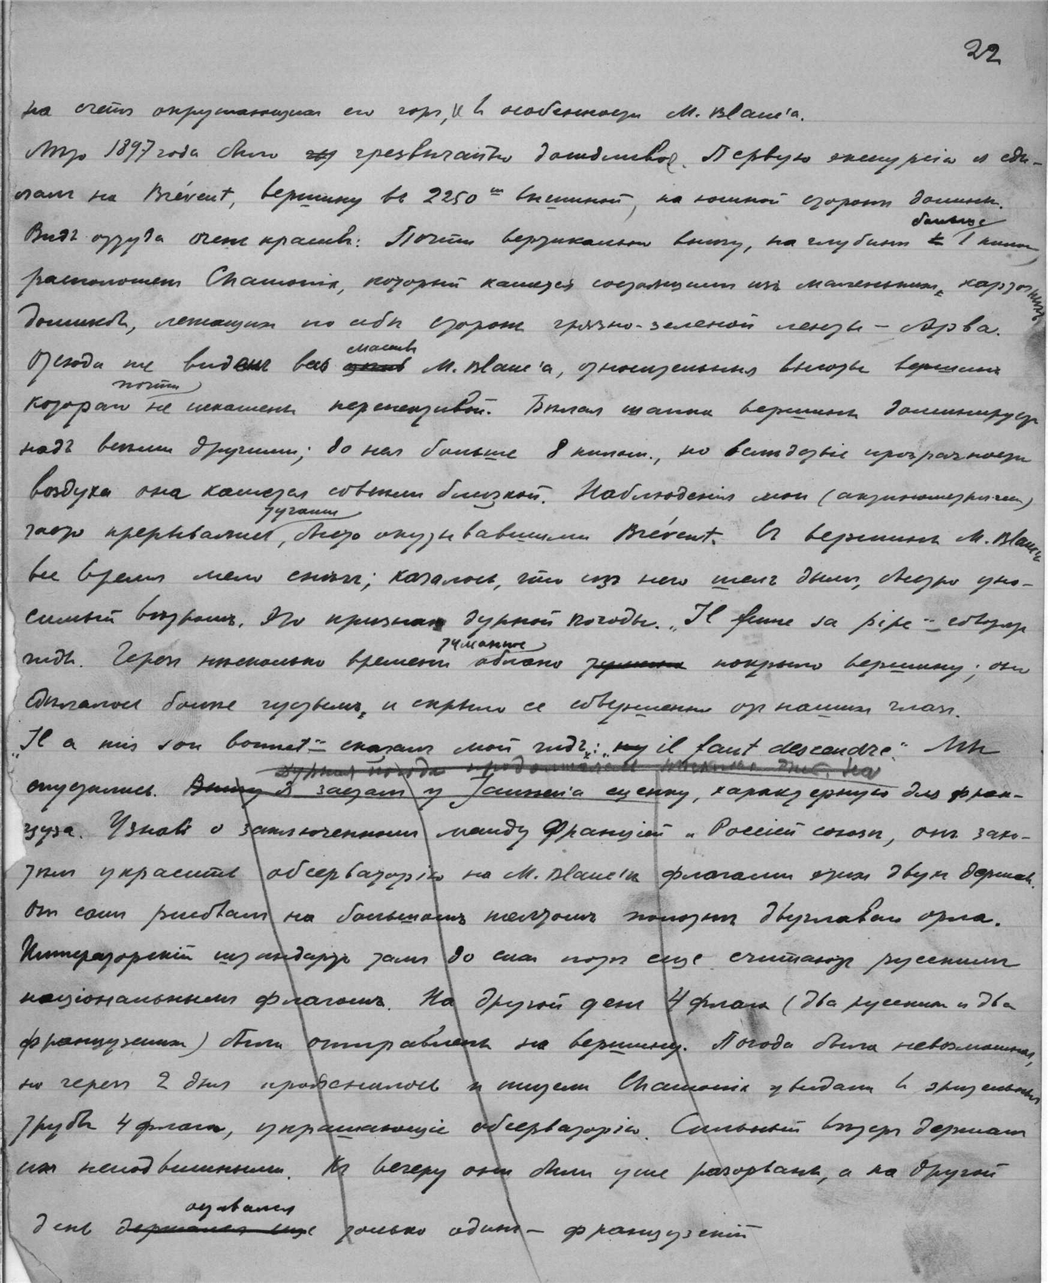 22
на счетъ окружающихъ его горъ, и въ особенности M. Blanc'a.
Лѣто 1897 года было чрезвычайно дождливое. Первую экскурсію я сдѣ-
лалъ на Brévent, вершину въ 2250 m вышиной, на южной сторонѣ долины.
больше
Видъ оттуда очень красивъ: Почти вертикально внизу, на глубинѣ 1 килом.
расположенъ Chamonix, который кажется состоящимъ изъ маленькихъ, картонныхъ
домиковъ, лежащихъ по обѣ стороны грязно-зеленой ленты – Арва.
массивъ
Отсюда же виденъ весь M. Blanc'a, относительныя высоты вершинъ
почти
котораго не искажены перспективой. Бѣлая шапка вершины доминируетъ
надъ всѣми другими; до нея больше 8 килом., но вслѣдствіе прозрачности
воздуха она кажется совсѣмъ близкой. Наблюденія мои (актинометрическія)
тучами
часто прерывались, быстро окутывавшими Brévent. Съ вершины M. Blanc'a
все время мело снѣгъ; казалось, что изъ него шелъ дымъ, быстро уно-
симый вѣтромъ. Это признакъ дурной погоды. „Il fume sa pipe“ – говорятъ
гиды. Черезъ нѣсколько времени облако покрыло вершину; оно
туманное
сдѣлалось болѣе густымъ, и скрыло ее совершенно отъ нашихъ глазъ.
„Il a mis son bonnet“ – сказалъ мой гидъ: „il faut descendre“. Мы
дурная погода продолжалась нѣсколько дней. На
спустились. Внизу я засталъ у Janssen'a сценку, характерную для фран-
цуза. Узнавъ о заключенномъ между Франціей и Россіей союзѣ, онъ захо-
тѣлъ украсить обсерваторію на M. Blanc'ѣ флагами этихъ двухъ державъ.
Онъ самъ рисовалъ на большомъ желтомъ полотнѣ двуглаваго орла.
Императорскій штандартъ тамъ до сихъ поръ еще считаютъ русскимъ
національнымъ флагомъ. На другой день 4 флага (два русскихъ и два
французскихъ) были отправлены на вершину. Погода была невозможная,
но черезъ 2 дня прояснилось и жители Chamonix увидали въ зрительныя
трубы 4 флага, украшающіе обсерваторію. Сильный вѣтеръ держалъ
ихъ неподвижными. Къ вечеру они были уже разорваны, а на другой
оставался
день держался еще только одинъ – французскій